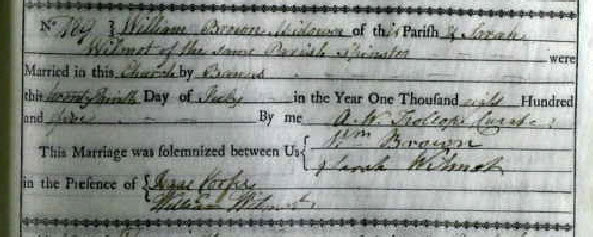 No 189 { William Brown Widower of this Parish & Sarah
Wilmot of the same Parish Spinster were
Married in this Church by Banns
this Day of July in the Year One Thousand eight Hundred
and five By me A. W. Trollope Curate
This Marriage was solemnized between Us { Wm Brown
Sarah Wilmot
in the Presence of { Isaac
William Wilmot